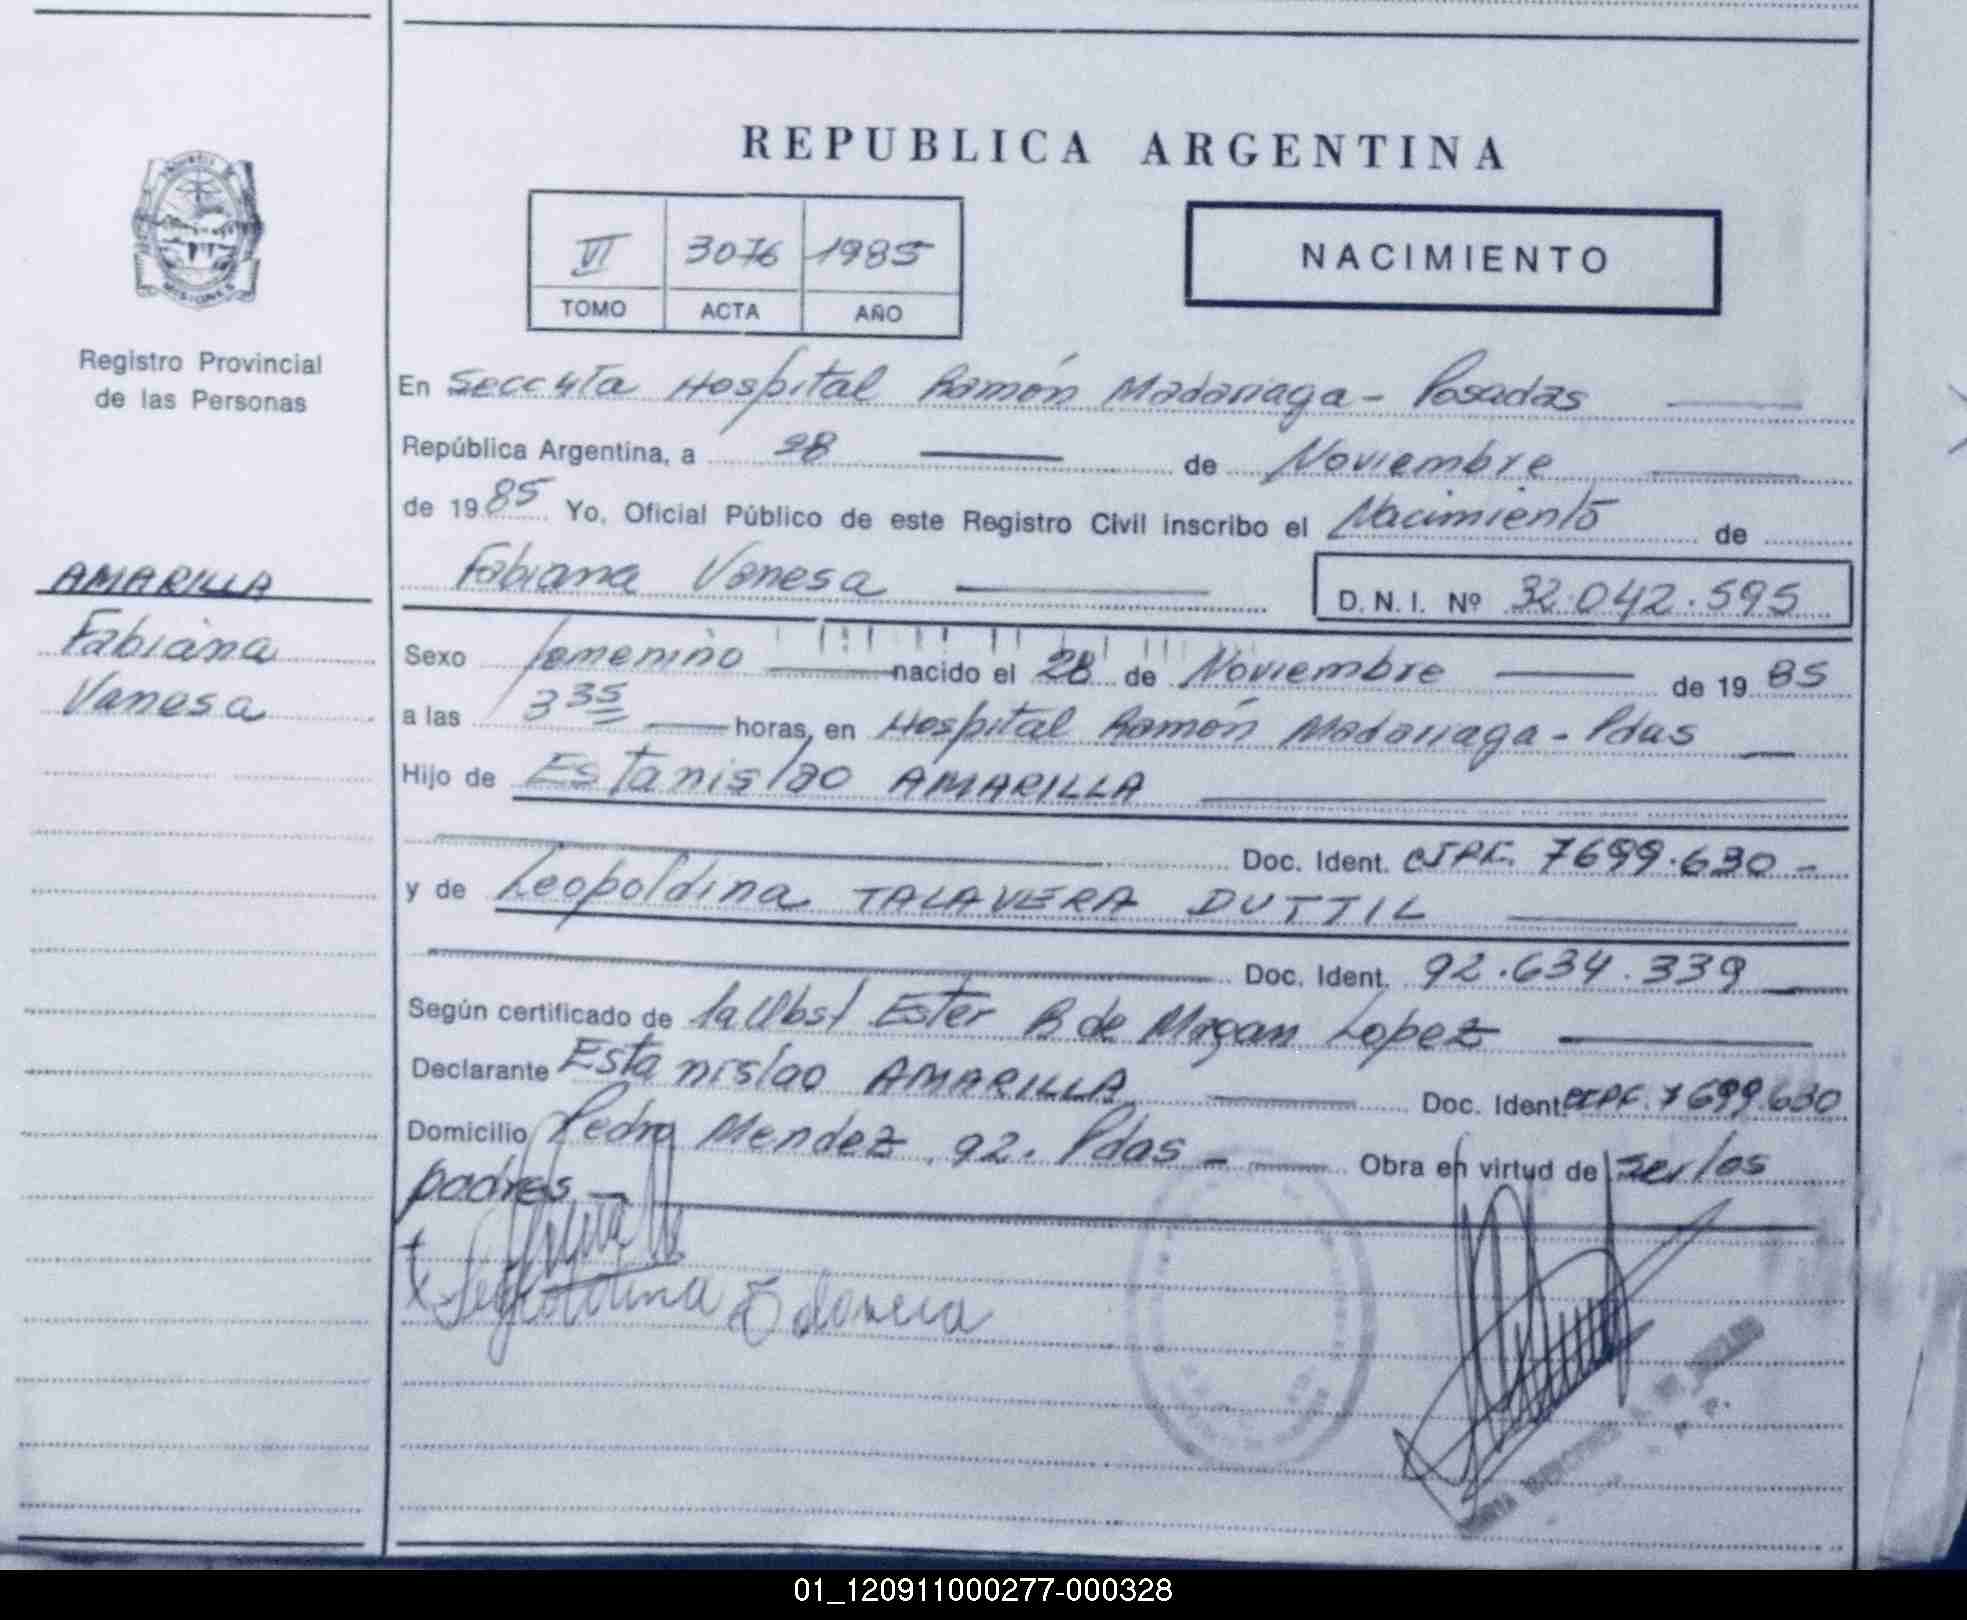 REPUBLICA ARGENTINA
VI 3076 1985
TOMO ACTA AÑO
NACIMIENTO
MISIONES
Registro Provincial
de las Personas
AMARILLA
Fabiana
Vanesa
En Secc 4ta Hospital Ramón Madariaga - Posadas
República Argentina, a 28 de Noviembre
de 1985 Yo, Oficial Público de este Registro Civil inscribo el Nacimiento de
Fabiana Vanesa
D. N. I. Nº 32.042.595
Sexo femenino nacido el 28 de Noviembre de 1985
a las 3 35 horas, en Hospital Ramón Madariaga - Pdas
Hijo de Estanislao AMARILLA
Doc. Ident. CIPF. 7699.630 -
y de Leopoldina TALAVERA DUTTIL
Doc. Ident. 92.634.339
Según certificado de la Obst Ester B de Lopez
Declarante Estanislao AMARILLA Doc. Ident. CIPF. 7699.630
Domicilio Pedro Mendez 92. Pdas - Obra en virtud de ser los
padres -
Leopoldina
01_120911000277-000328